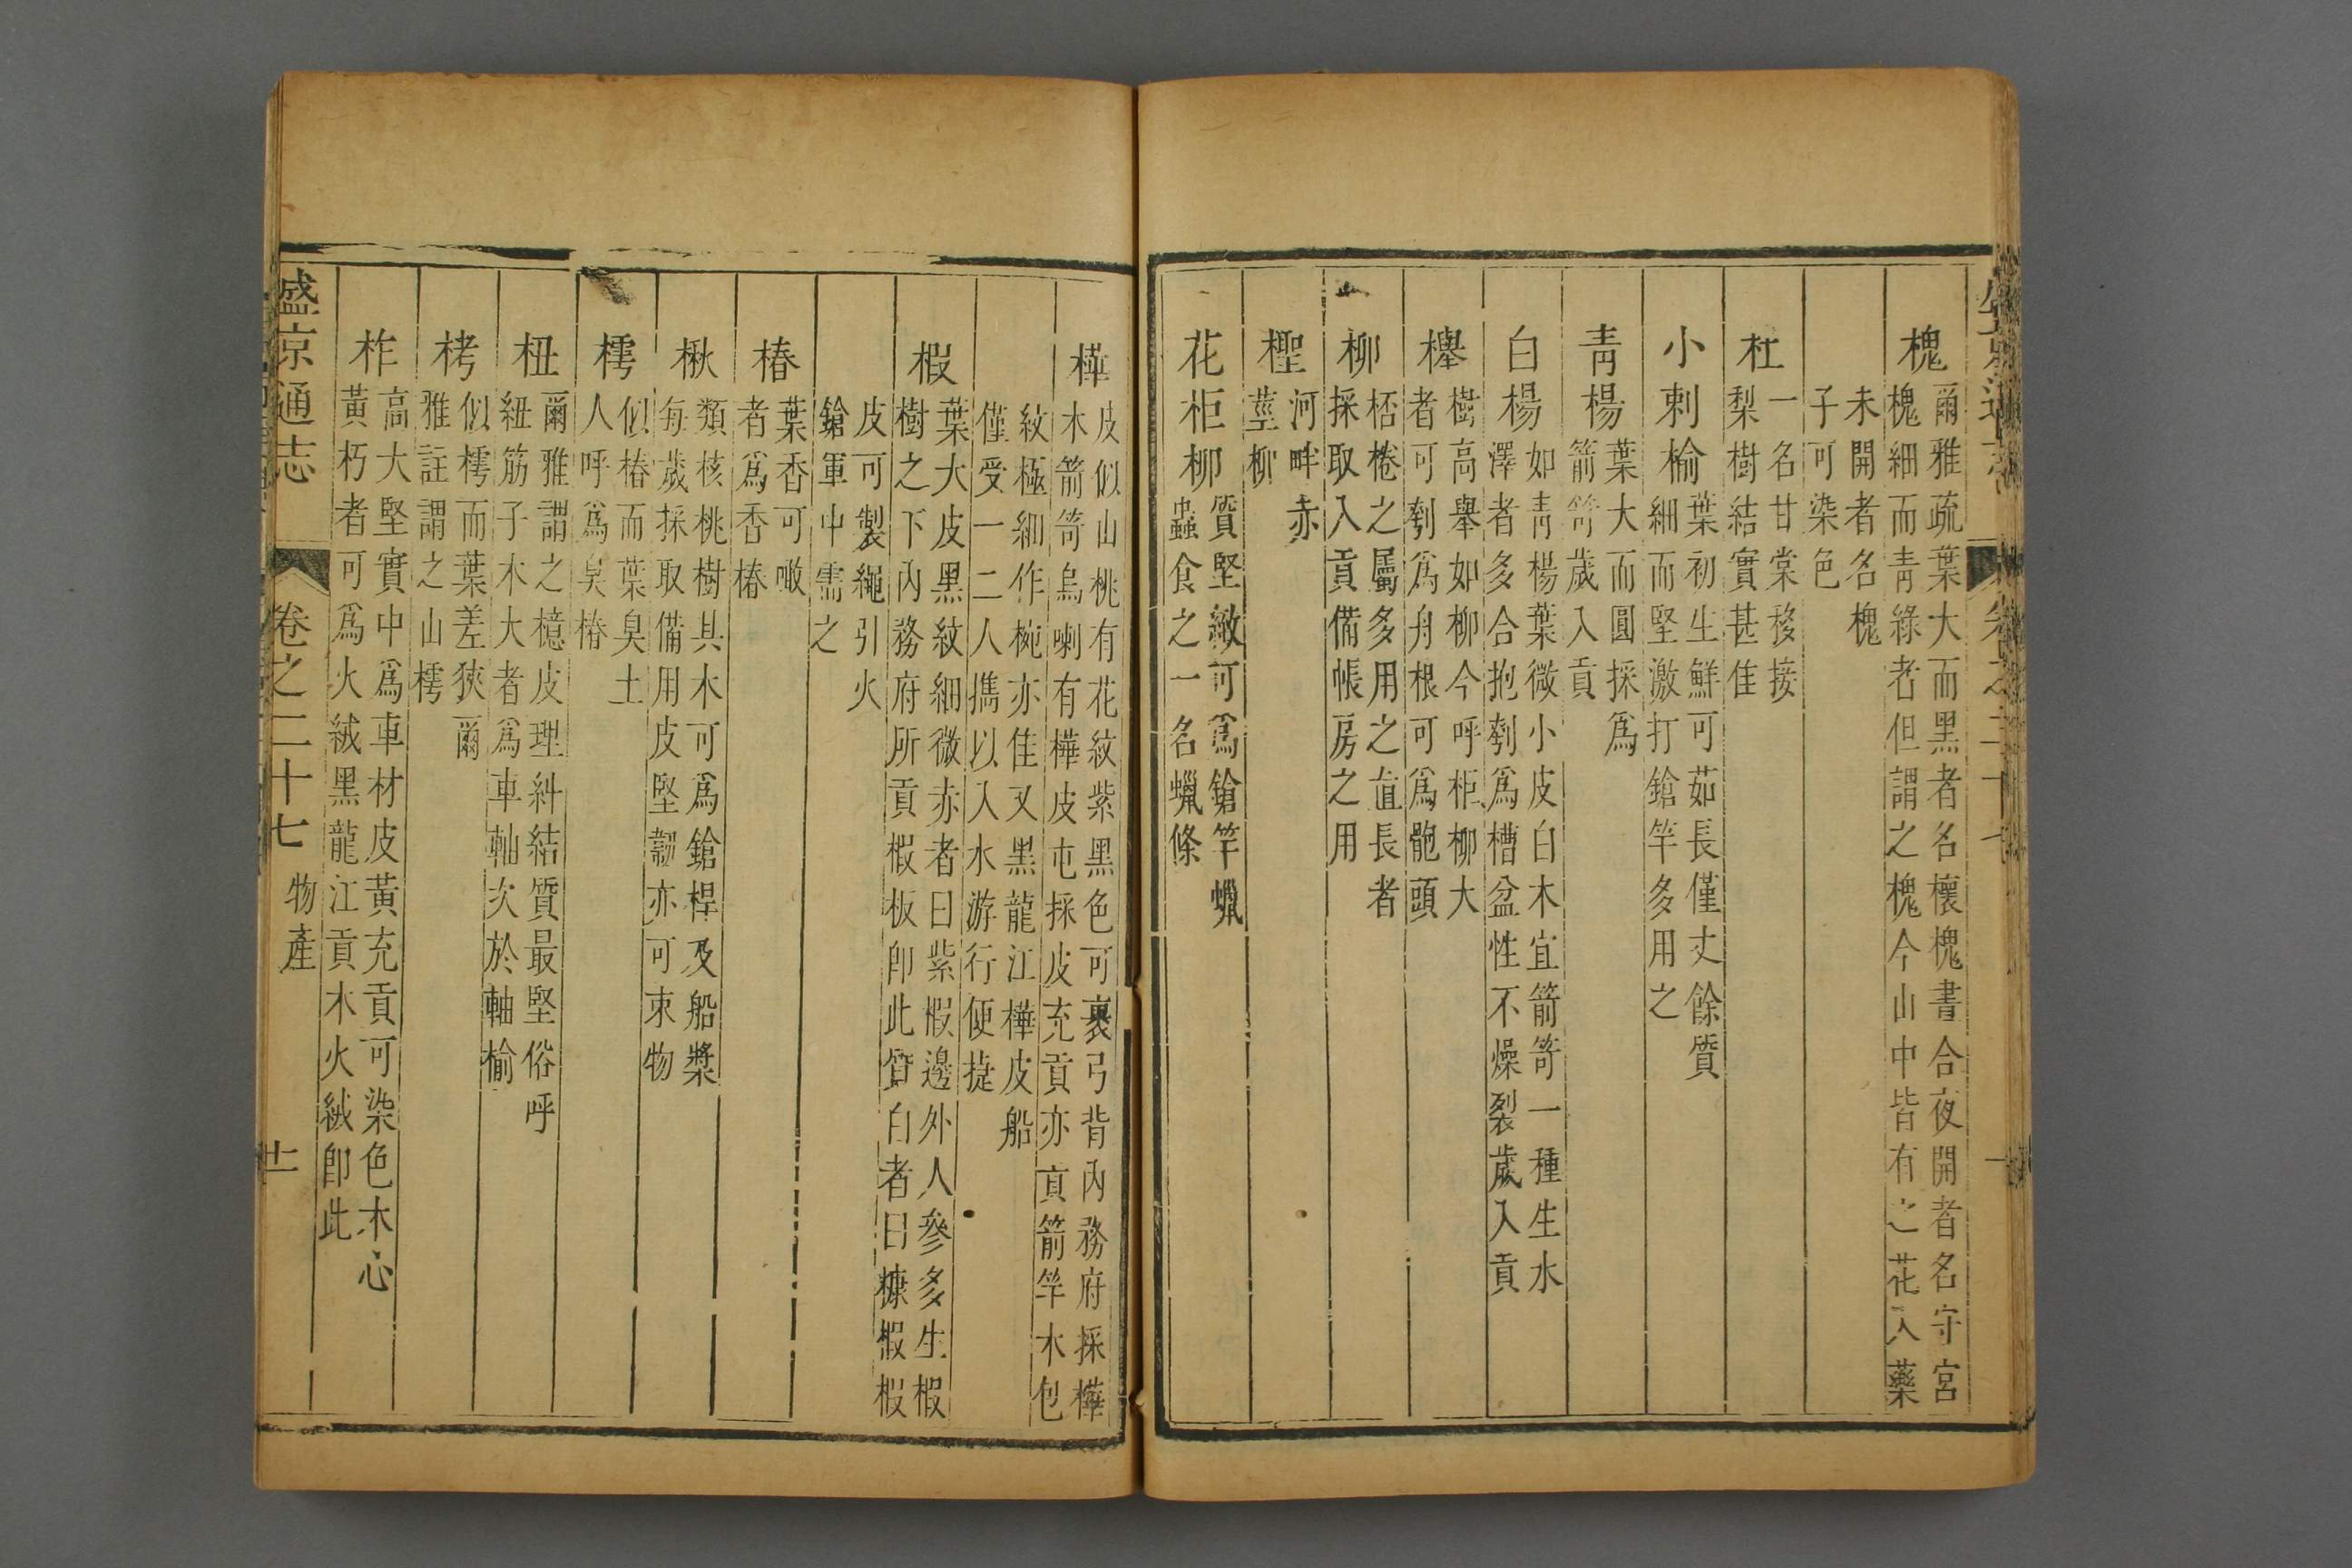 槐 爾雅疏葉大而黑者名櫰槐晝合夜開者名守宮
槐細而青綠者但謂之槐今山中皆有之花入藥
未開者名槐
子可染色
杜 一名甘棠移接
梨樹結實甚佳
小刺榆 葉初生鮮可茹長僅丈餘質
細而堅激打鎗竿多用之
青楊 葉大而圓採爲
箭笴歲入貢
白楊 如青楊葉微小皮白木宜箭笴一種生水
澤者多合抱刳爲槽盆性不燥裂歲入貢
櫸 樹高舉如柳今呼柜柳大
者可刳爲舟根可爲骲頭
柳 桮棬之屬多用之直長者
採取入貢備帳房之用
檉 河畔赤
莖柳
花柜柳 質堅緻可爲鎗竿蠟
蟲食之一名蠟條
樺 皮似山桃有花紋紫黑色可裹弓背內務府採樺
木箭笴烏喇有樺皮屯採皮充貢亦宜箭竿木包
紋極細作椀亦佳又黑龍江樺皮船
僅受一二人攜以入水游行便捷
椵 葉大皮黑紋細微赤者曰紫椵邊外人參多生椵
樹之下內務府所貢椵板卽此質白者曰糠椵椵
皮可製繩引火
鎗軍中需之
椿 葉香可噉
者爲香椿
楸 類核桃樹其木可爲鎗桿及船槳
每歲採取備用皮堅韌亦可束物
樗 似椿而葉臭土
人呼爲臭椿
杻 爾雅謂之檍皮理糾結質最堅俗呼
紐筋子木大者爲車軸次於軸榆
栲 似樗而葉差狹爾
雅註謂之山樗
柞 高大堅實中爲車材皮黃充貢可染色木心
黃朽者可爲火絨黑龍江貢木火絨卽此
盛京通志 卷之二十七 物產 十一